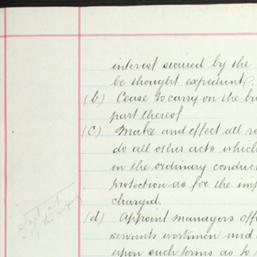 interest secured by the
be thought expedient.
(b) Cease to carry on the bu
part thereof
(c) Make and effect all re
do all other acts which
in the ordinary conduc
protection as for the imp
charged.
(d) Appoint managers offi
servants workmen and
upon such terms as to